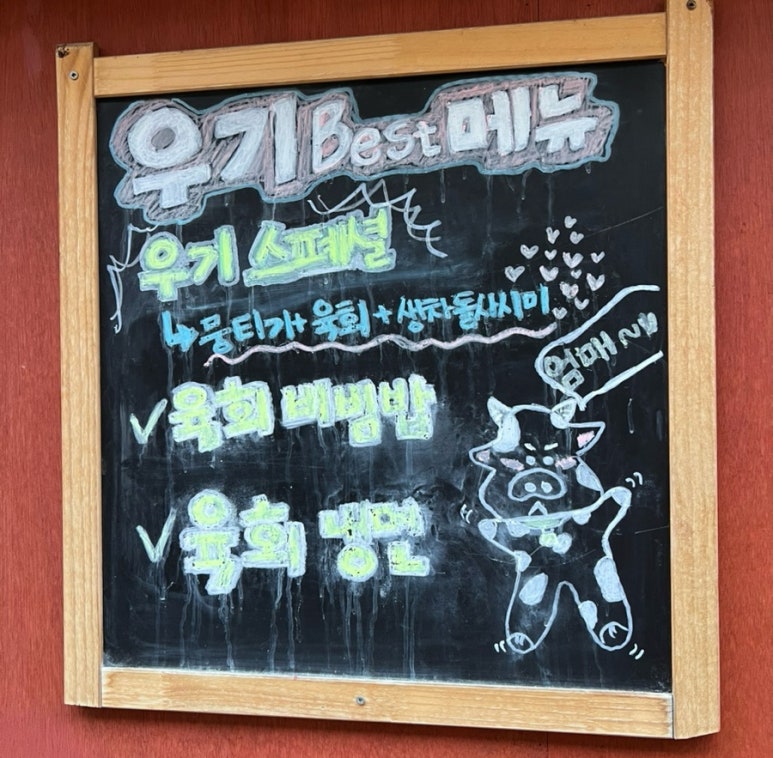 우기 Best 메뉴
우기 스페셜
↳ 뭉티기 + 육회 + 생차돌사시미
엄매~
✓ 육회 비빔밥
✓ 육회 냉면